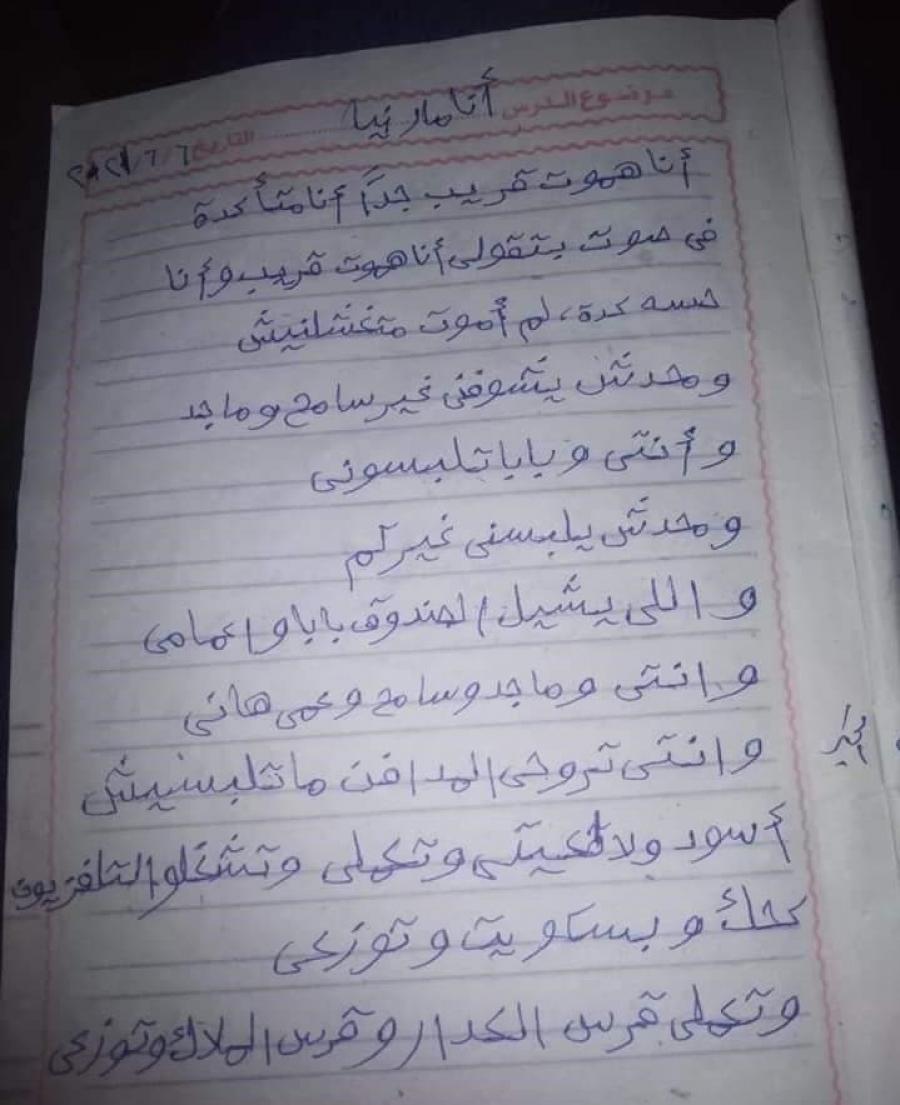 موضوع الدرس أنا مارنيا التاريخ ٦/٦/٢٠٢١
أنا هموت قريب جداً أنا متأكدة
فى صوت بتقولى أنا هموت قريب وأنا
حسه كدة، لم أموت متغسلنيش
ومحدش يشوفنى غير سامح وماجد
وأنتى وبابا تلبسونى
ومحدش يلبسنى غيركم
واللى يشيل الصندوق بابا واعمامى
وانتى وماجد وسامح وعمى هانى
وانتى تروحى المدافن ماتلبسيش
أسود ولا تعيتى وتكملى وتشغلوا التلفزيون
كحك وبسكويت وتوزعى
وتعملى قرس الكدار وقرس الملاك وتوزعى